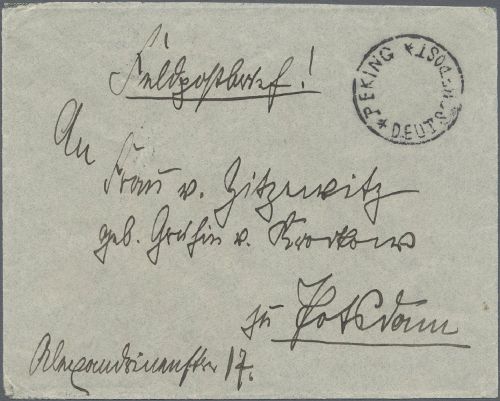 Feldpostbrief!
* PEKING * DEUTSCHE POST
An
Frau v. Zitzewitz
geb. Gräfin v. Krockow
zu Potsdam
Alexandrinenstr 17.